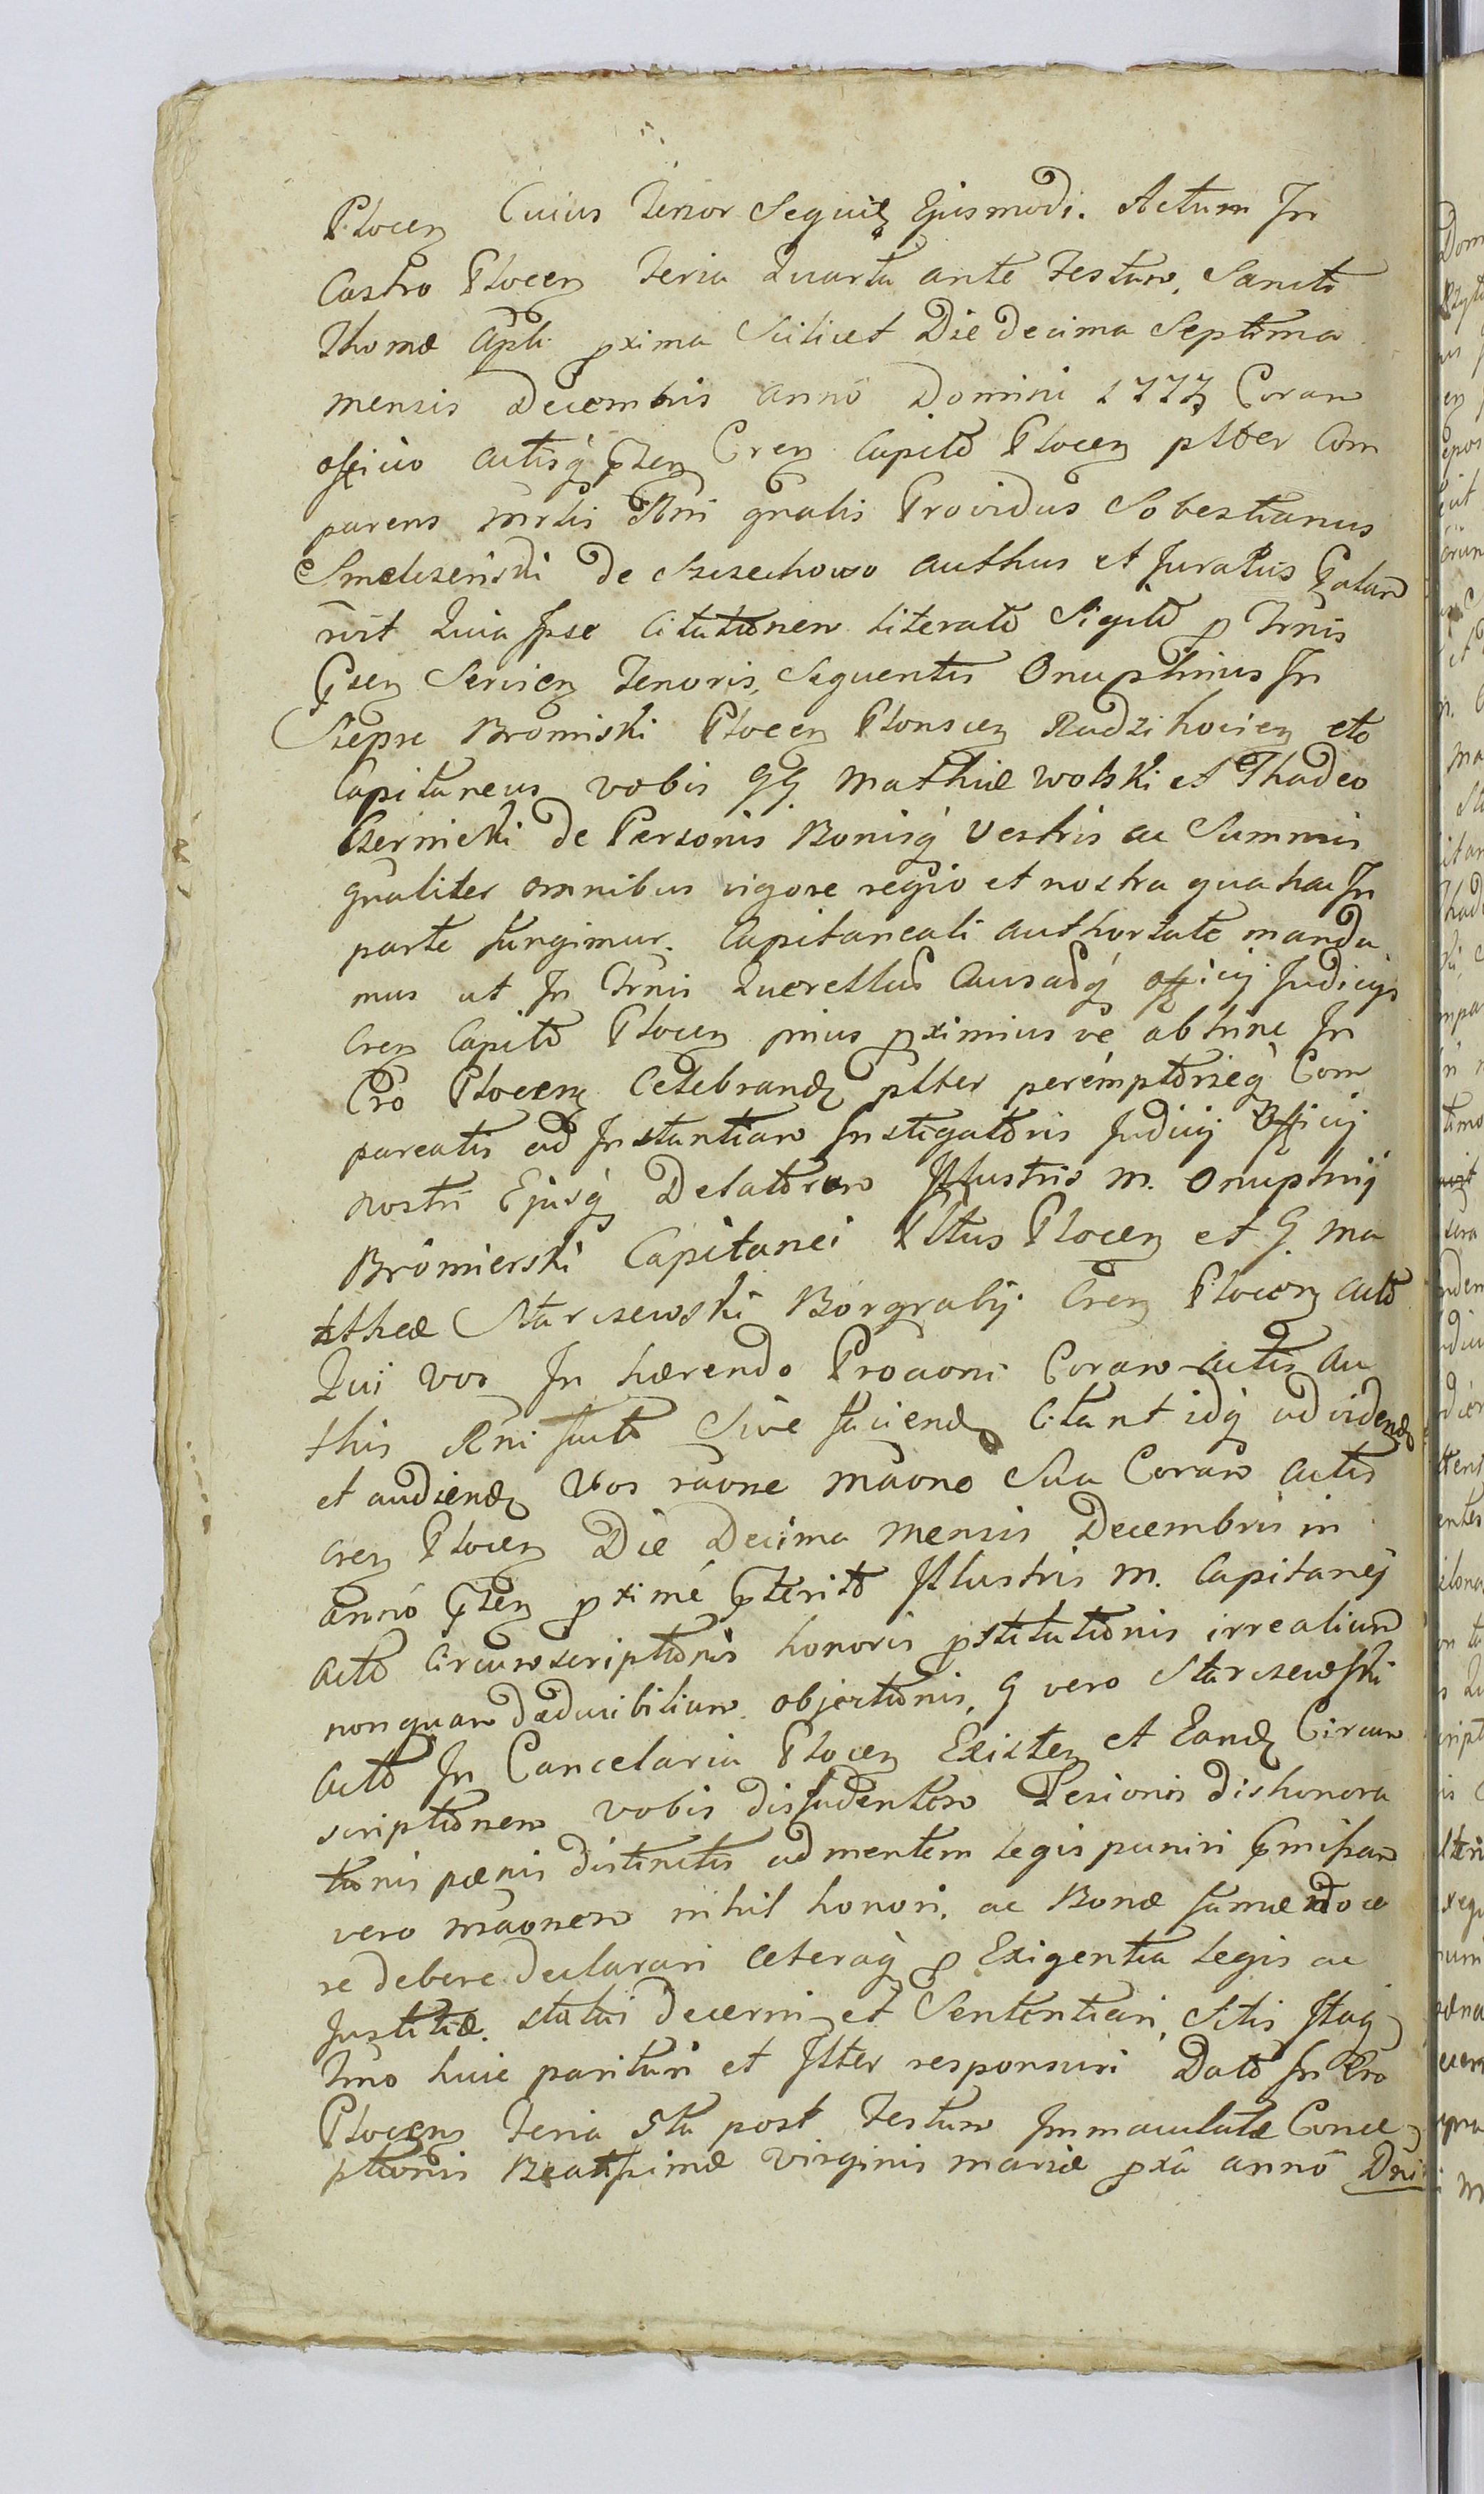 Plocen Cuius Tenor Sequit Ejusmodi. Actum In
Castro Plocen Feria Quarta ante Festum, Sancti
Thomæ Apli pxima Scilicet Die decima Septima
mensis decembris anno Domini 1777 Coram
officio actisq pten Cren Capitl Plocen plter Com
parens mrlis Rni gnalis Providus Sobestianus
Smelizenski de Szczechowo authus et Juratus
rvit Quia Ipse Citationem literato Sigito p Trnis
Psen Servien Tenoris, Sequentis Onuphrius In
Szepsc Bromiski Plocen Plonscen Radzikovien etc
Capitaneus vobis GG Mathiæ Wolski et Thadeo
Czernicki de Personis Bonisq Vestris ac Summis
gnaliter omnibus vigore regio et nostra qua hac In
parte fungimur. Capitaneali authortate manda
mus ut In Trnis Querellus Causasq officij Judicijs
Cren Capitl Plocen prius pximius ve abhinc In
Cro Plocen Celebrand plter peremptorieq Com
pareatis ad Instantiam Instigatoris Judicij Officij
nostri Ejusq Delatorum Illustris M. Onuphrij
Bromierski Capitanei Pltus Plocen et G. Ma
thæ Starczewski Borgrabij Cren Plocen acto
Qui vos In hærendo Proaoni Coram actis au
this Rni facto Sive faciend Citant idq ad videnđ
et audiend Vos raone maone Sua Coram actis
cren Plocen Die Decima Mensis Decembris in
anno pten pximé pterito Illustris M. Capitanej
acto Circumscriptionis honoris pstitutionis irrealium
nonquam dæducibilium objectionis, G vero Starczewski
acto In Cancelaria Plocen Existen et Eand Circum
scriptionem vobis dissudentem Lesionis dishonora
tionis pænis distinctis ad mentem legis puniri pmissam
vero maonem nihil honori, ac Bonæ famæ doce
re debere declarari Ceteraq p Exigentia legis ac
Justitiæ. statui decerni et Sententiari, Sitis Itaq
Trno huic parituri et Ilter responsuri Dato In Cro
Plocens Feria 5ta post Festum Immaculatæ Conce
ptionis Beatissimæ Virginis mariæ pxâ anno Dni